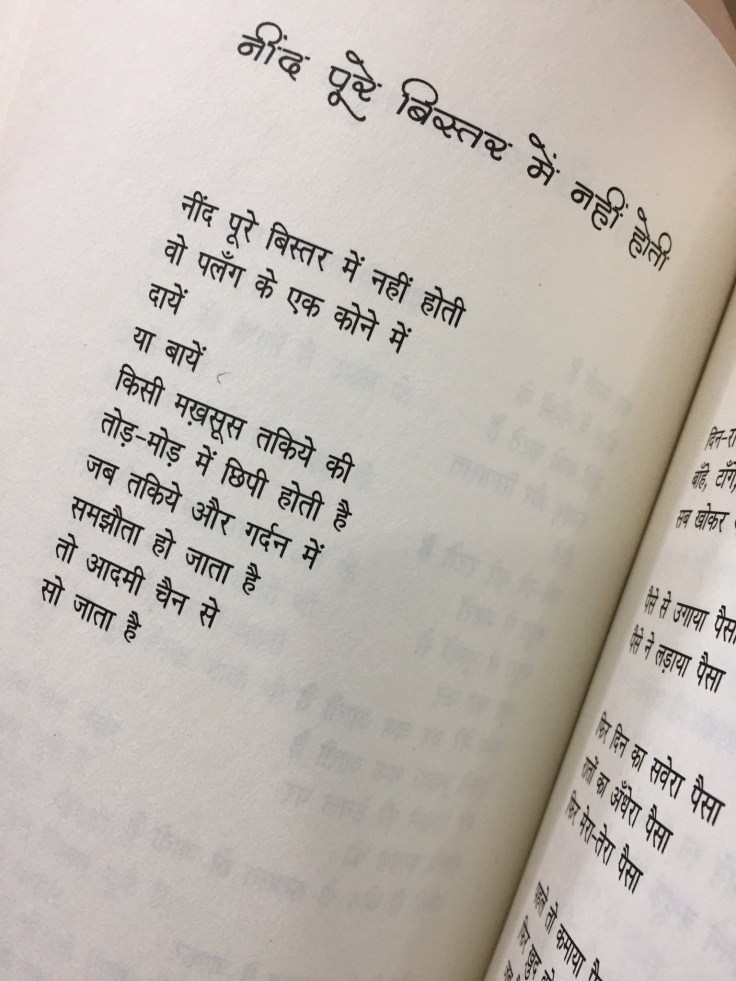 नींद पूरे बिस्तर में नहीं होती
नींद पूरे बिस्तर में नहीं होती
वो पलँग के एक कोने में
दायें
या बायें
किसी मख़सूस तकिये की
तोड़-मोड़ में छिपी होती है
जब तकिये और गर्दन में
समझौता हो जाता है
तो आदमी चैन से
सो जाता है
बाँहे, टाँगें,
सब खोकर
पैसे से उगाया पैसा
पैसे ने लड़ाया पैसा
फिर दिन का सवेरा पैसा
रातों का अँधेरा पैसा
फिर मेरा-तेरा पैसा
पहले तो कमाया
फिर ख़ुद